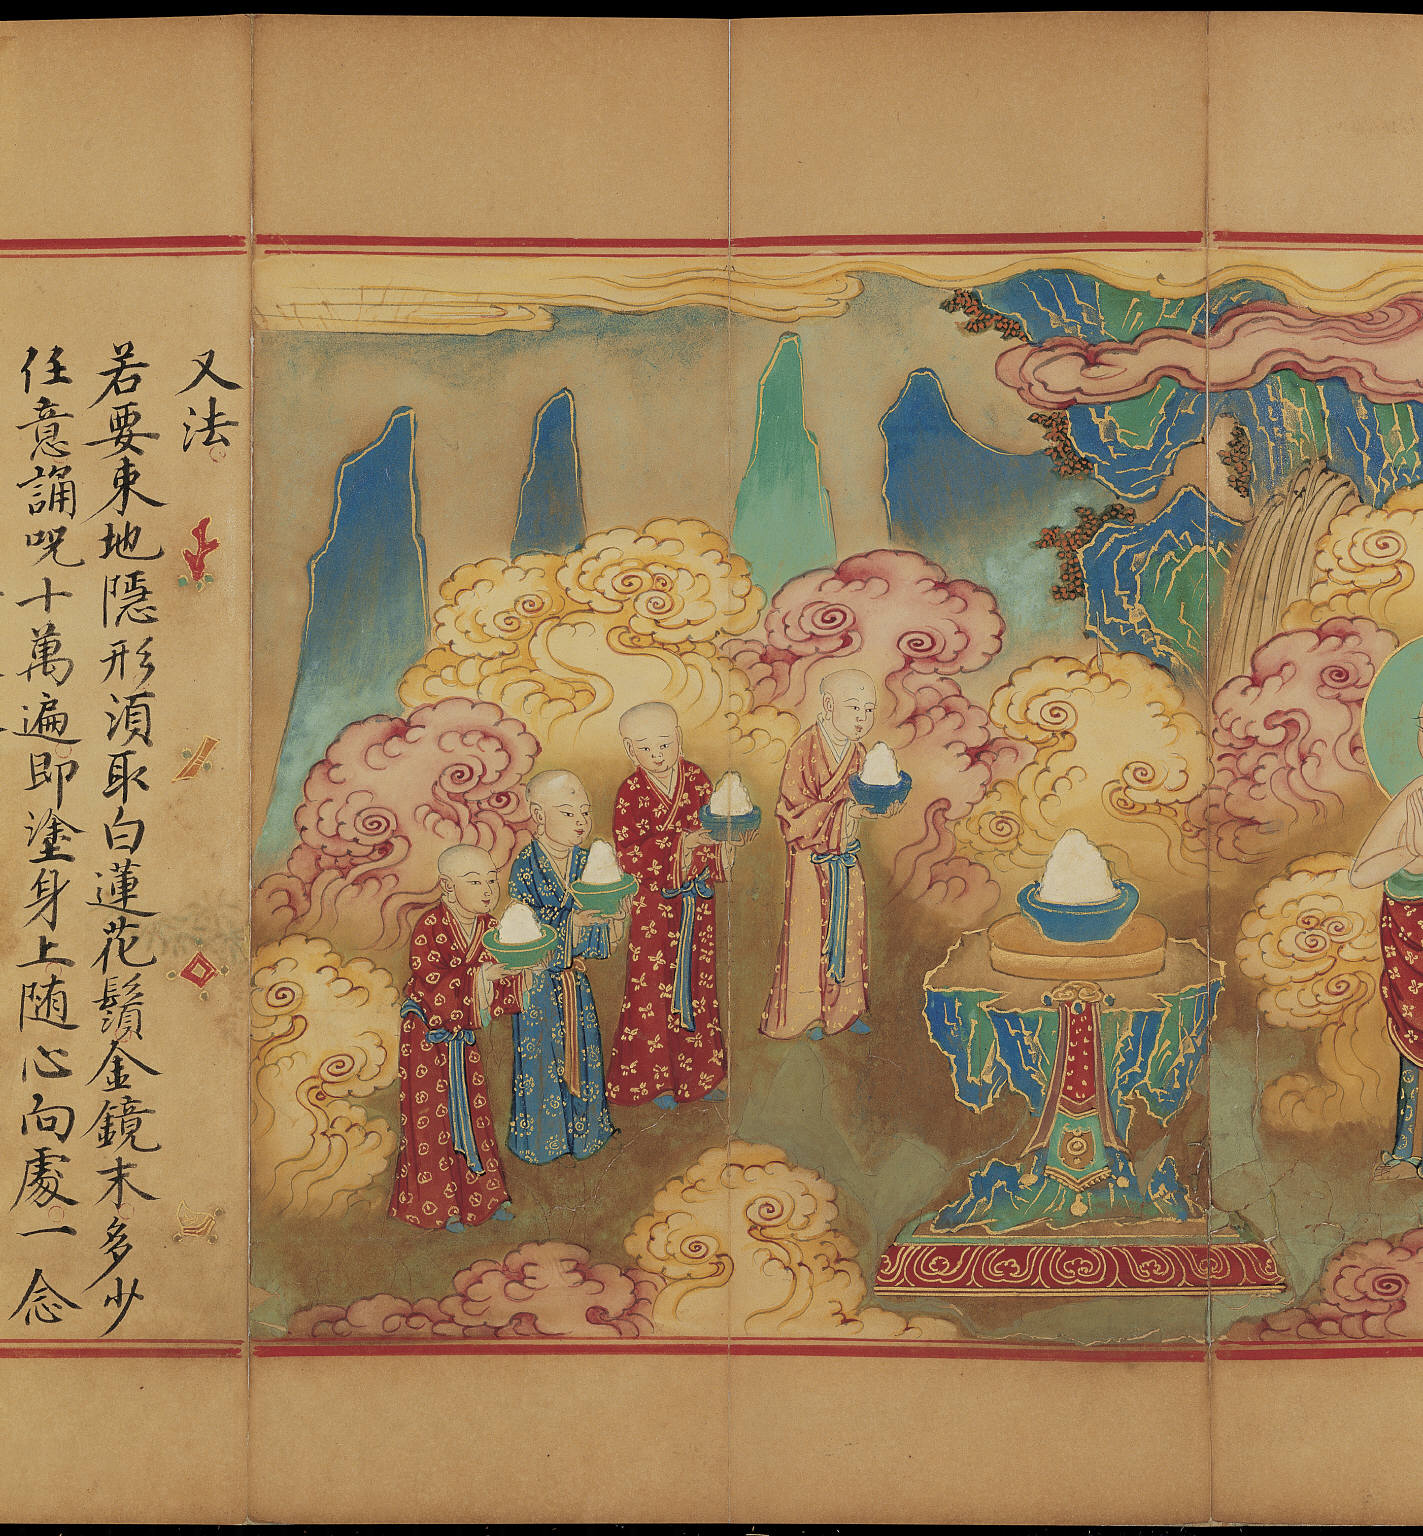 又法
若要東地隱形須取白蓮花鬚金鏡末多少
任意誦呪十萬遍即塗身上随心向處一念